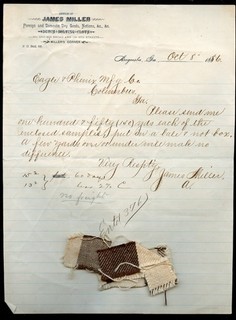 JAMES MILLER
Foreign and Domestic Dry Goods, Notions, &c., &c.
Augusta, Ga. Oct 8" 1886
Eagle & Phenix Mfg Co
Columbus
Ga.
Please send me
one hundred & fifty (150) yds each of the
enclosed samples, put in a bale & not box.
A few yards over or under will make no
difference.
Very Resptly
James Miller
60 days
less 2% C
no freight